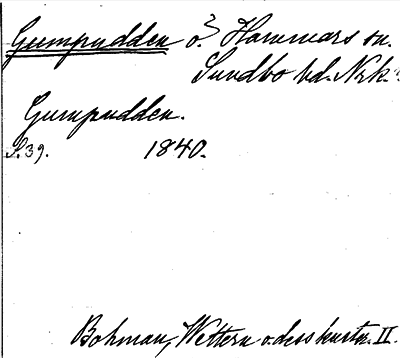 Gumpudden ö. Hammars sn.
Sundbo hd. Nrk.
Gumpudden.
S. 39. 1840.
Bohman, Wettern o. dess kuster. II.